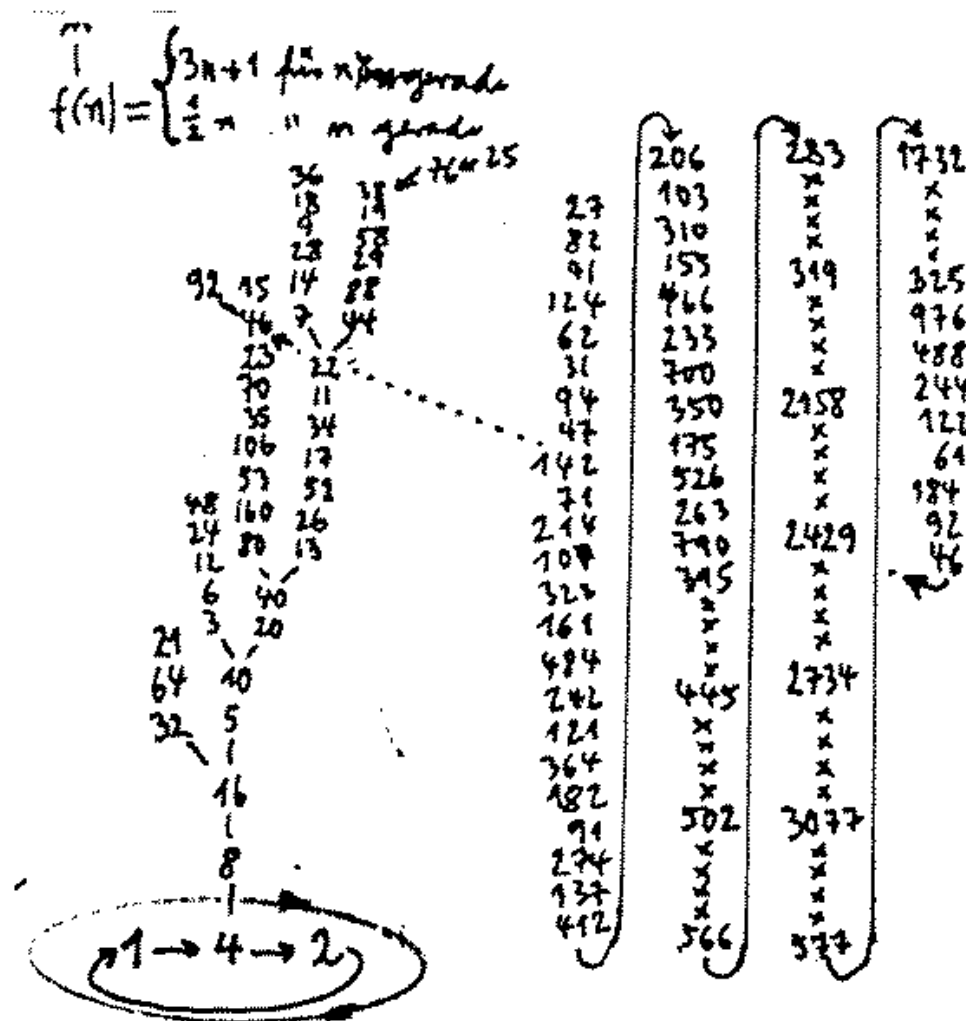 f(n) = { 3n+1 für n ungerade
½ n " n gerade
36
18
9
28
14
7
38 ← 76 ← 25
19
58
29
88
44
92
15
46
23
70
35
106
53
160
80
22
11
34
17
52
26
13
48
24
12
6
3
40
20
21
64
32
10
5
16
8
1 → 4 → 2
27
82
41
124
62
31
94
47
142
71
214
107
322
161
484
242
121
364
182
91
274
137
412
206
103
310
155
466
233
700
350
175
526
263
790
395
x
x
x
x
445
x
x
x
x
502
x
x
x
x
566
283
x
x
x
x
319
x
x
x
x
2158
x
x
x
x
2429
x
x
x
x
2734
x
x
x
x
3077
x
x
x
x
577
1732
x
x
x
x
325
976
488
244
122
61
184
92
46